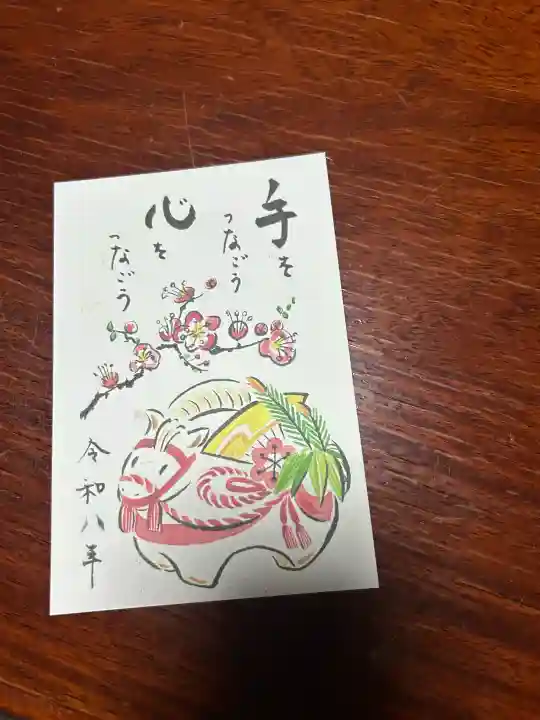 手を
つなごう
心を
つなごう
令和八年